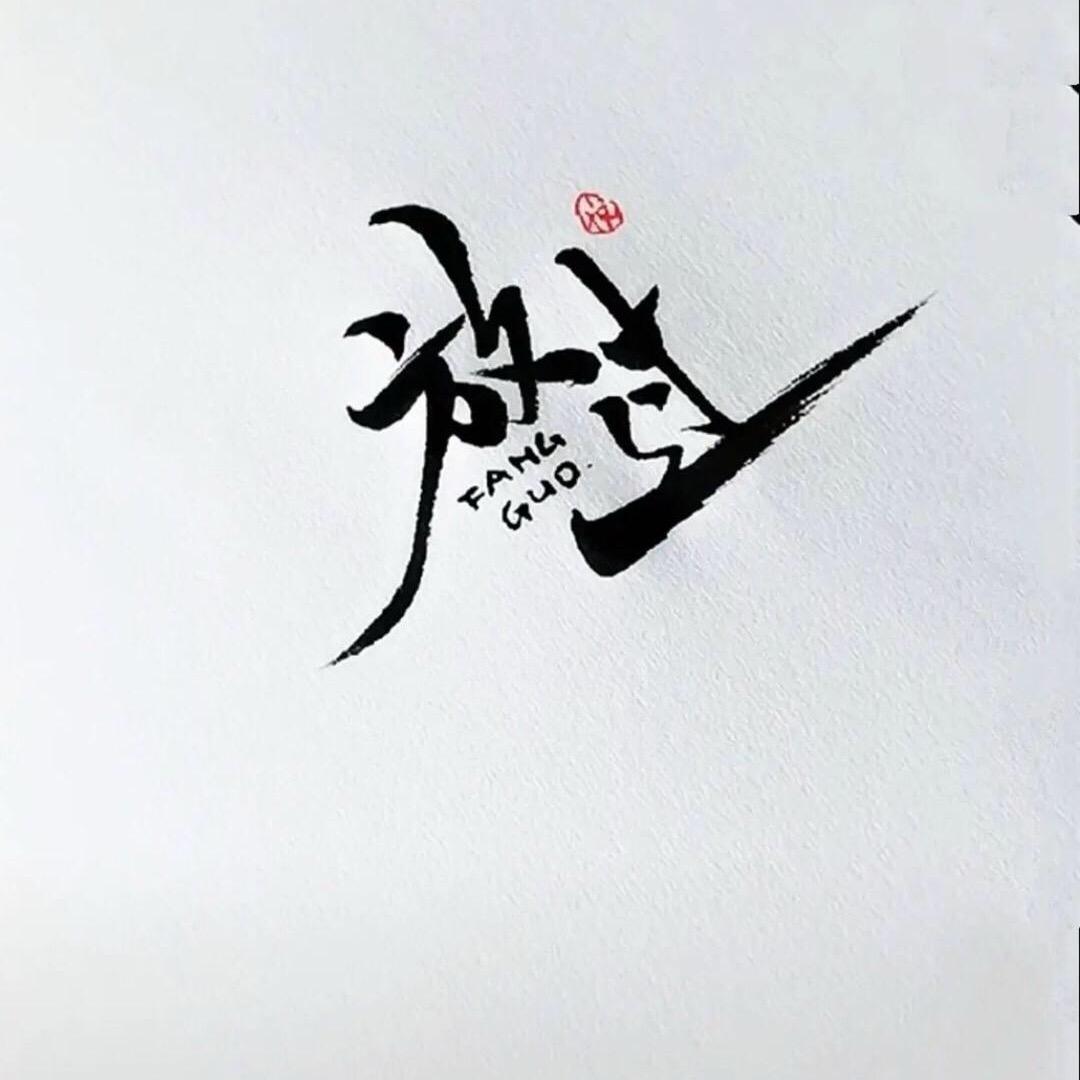 放过
FANG
GUO.